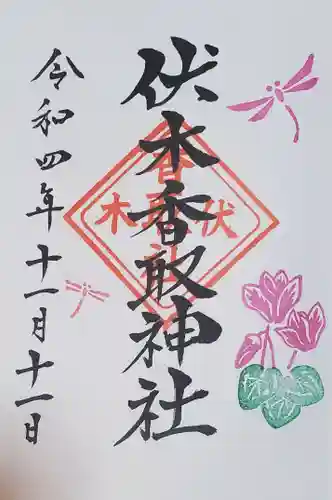 伏木香取神社
令和四年十一月十一日